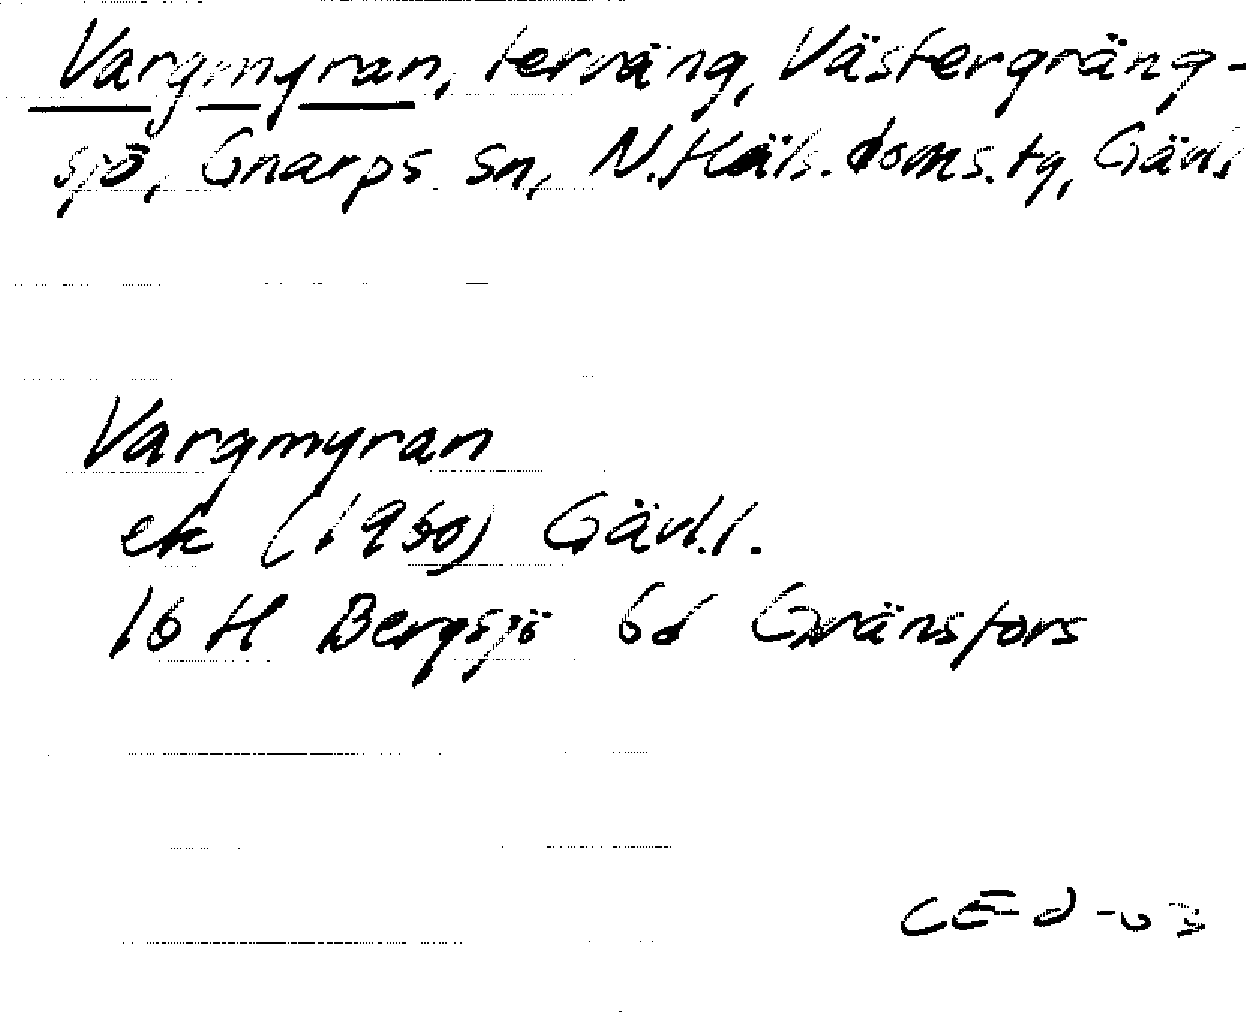 Vargmyran, terräng, Västergräng-
sjö, Gnarps sn, N.Häls.doms.tg, Gävl.
Vargmyran
ek (1960) Gävl.l.
16 H Bergsjö 6d Gränsfors
CE-d-03